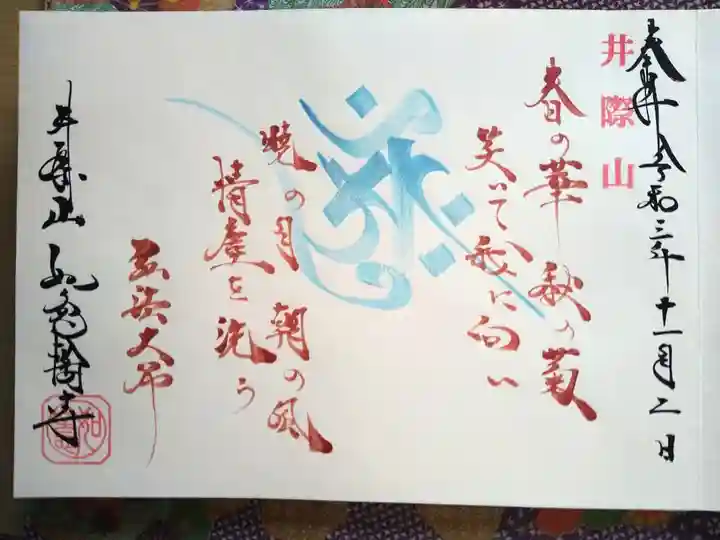 奉拝 令和三年十一月二日
井際山
春の華 秋の菊
笑いて我に向い
暁の月 朝の風
情塵を洗う
弘法大師
井際山 如意輪寺